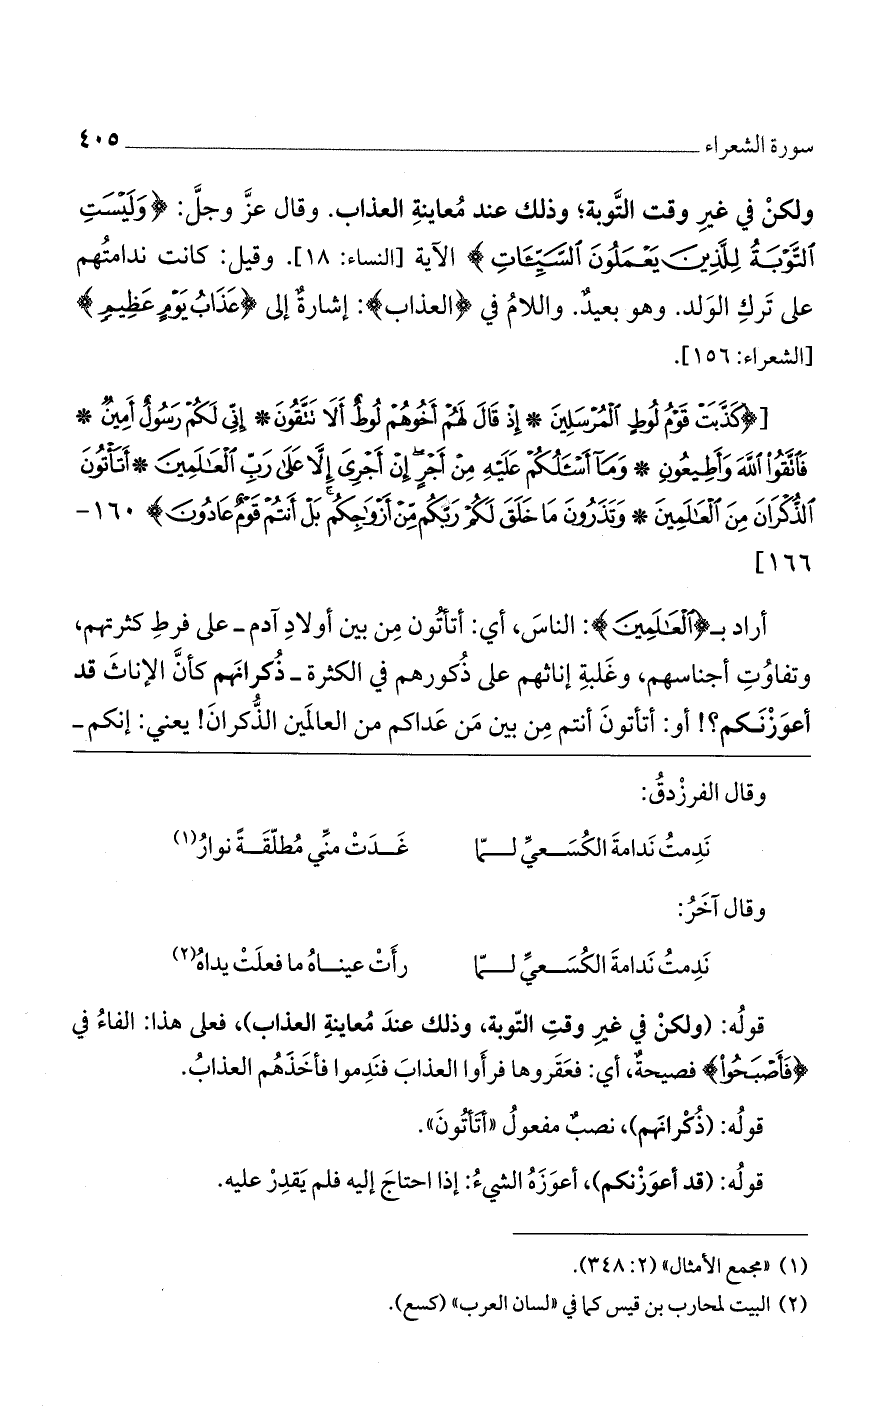 سورة الشعراء ٤٠٥
ولكنْ في غيرِ وقت التَّوبة؛ وذلك عند مُعاينةِ العذاب. وقال عزَّ وجلَّ: ﴿وَلَيْسَتِ
ٱلتَّوْبَةُ لِلَّذِينَ يَعْمَلُونَ ٱلسَّيِّئَاتِ﴾ الآية [النساء: ١٨]. وقيل: كانت ندامتُهم
على تَركِ الوَلد. وهو بعيدٌ. واللامُ في ﴿العذاب﴾: إشارةٌ إلى ﴿عَذَابُ يَوْمٍ عَظِيمٍ﴾
[الشعراء: ١٥٦].
[﴿كَذَّبَتْ قَوْمُ لُوطٍ ٱلْمُرْسَلِينَ * إِذْ قَالَ لَهُمْ أَخُوهُمْ لُوطٌ أَلَا تَتَّقُونَ * إِنِّي لَكُمْ رَسُولٌ أَمِينٌ *
فَٱتَّقُوا۟ ٱللَّهَ وَأَطِيعُونِ * وَمَآ أَسْـَٔلُكُمْ عَلَيْهِ مِنْ أَجْرٍ إِنْ أَجْرِىَ إِلَّا عَلَىٰ رَبِّ ٱلْعَٰلَمِينَ * أَتَأْتُونَ
ٱلذُّكْرَانَ مِنَ ٱلْعَٰلَمِينَ * وَتَذَرُونَ مَا خَلَقَ لَكُمْ رَبُّكُم مِّنْ أَزْوَٰجِكُم ۚ بَلْ أَنتُمْ قَوْمٌ عَادُونَ﴾ ١٦٠-
١٦٦]
أراد بـ﴿ٱلْعَٰلَمِينَ﴾: الناسَ، أي: أتأتُون مِن بين أولادِ آدم ـ على فرطِ كثرتهم،
وتفاوُتِ أجناسهم، وغَلبةِ إناثهم على ذُكورهم في الكثرة ـ ذُكرانَهم كأنَّ الإناثَ قد
أعوَزْنَـكم؟! أو: أتأتونَ أنتم مِن بين مَن عَداكم من العالمَين الذُّكرانَ! يعني: إنكم ـ
وقال الفرزْدقُ:
نَدِمتُ نَدامةَ الكُسَـعيِّ لـمّا غَـدَتْ منِّي مُطلّقَـةً نوارُ(١)
وقال آخَرُ:
نَدِمتُ نَدامةَ الكُسَـعيِّ لـمّا رأَتْ عينـاهُ ما فعلَتْ يداهُ(٢)
قولُه: (ولكنْ في غيرِ وقتِ التّوبة، وذلك عندَ مُعاينةِ العذاب)، فعلى هذا: الفاءُ في
﴿فَأَصْبَحُوا۟﴾ فصيحةٌ، أي: فعَقَروها فرأَوا العذابَ فنَدِموا فأخَذَهُم العذابُ.
قولُه: (ذُكْرانَهم)، نصبٌ مفعولُ «أتَأتُونَ».
قولُه: (قد أعوَزْنكم)، أعوَزَهُ الشيءُ: إذا احتاجَ إليه فلم يَقدِرْ عليه.
(١) «مجمع الأمثال» (٢: ٣٤٨).
(٢) البيت لمحارب بن قيس كما في «لسان العرب» (كسع).